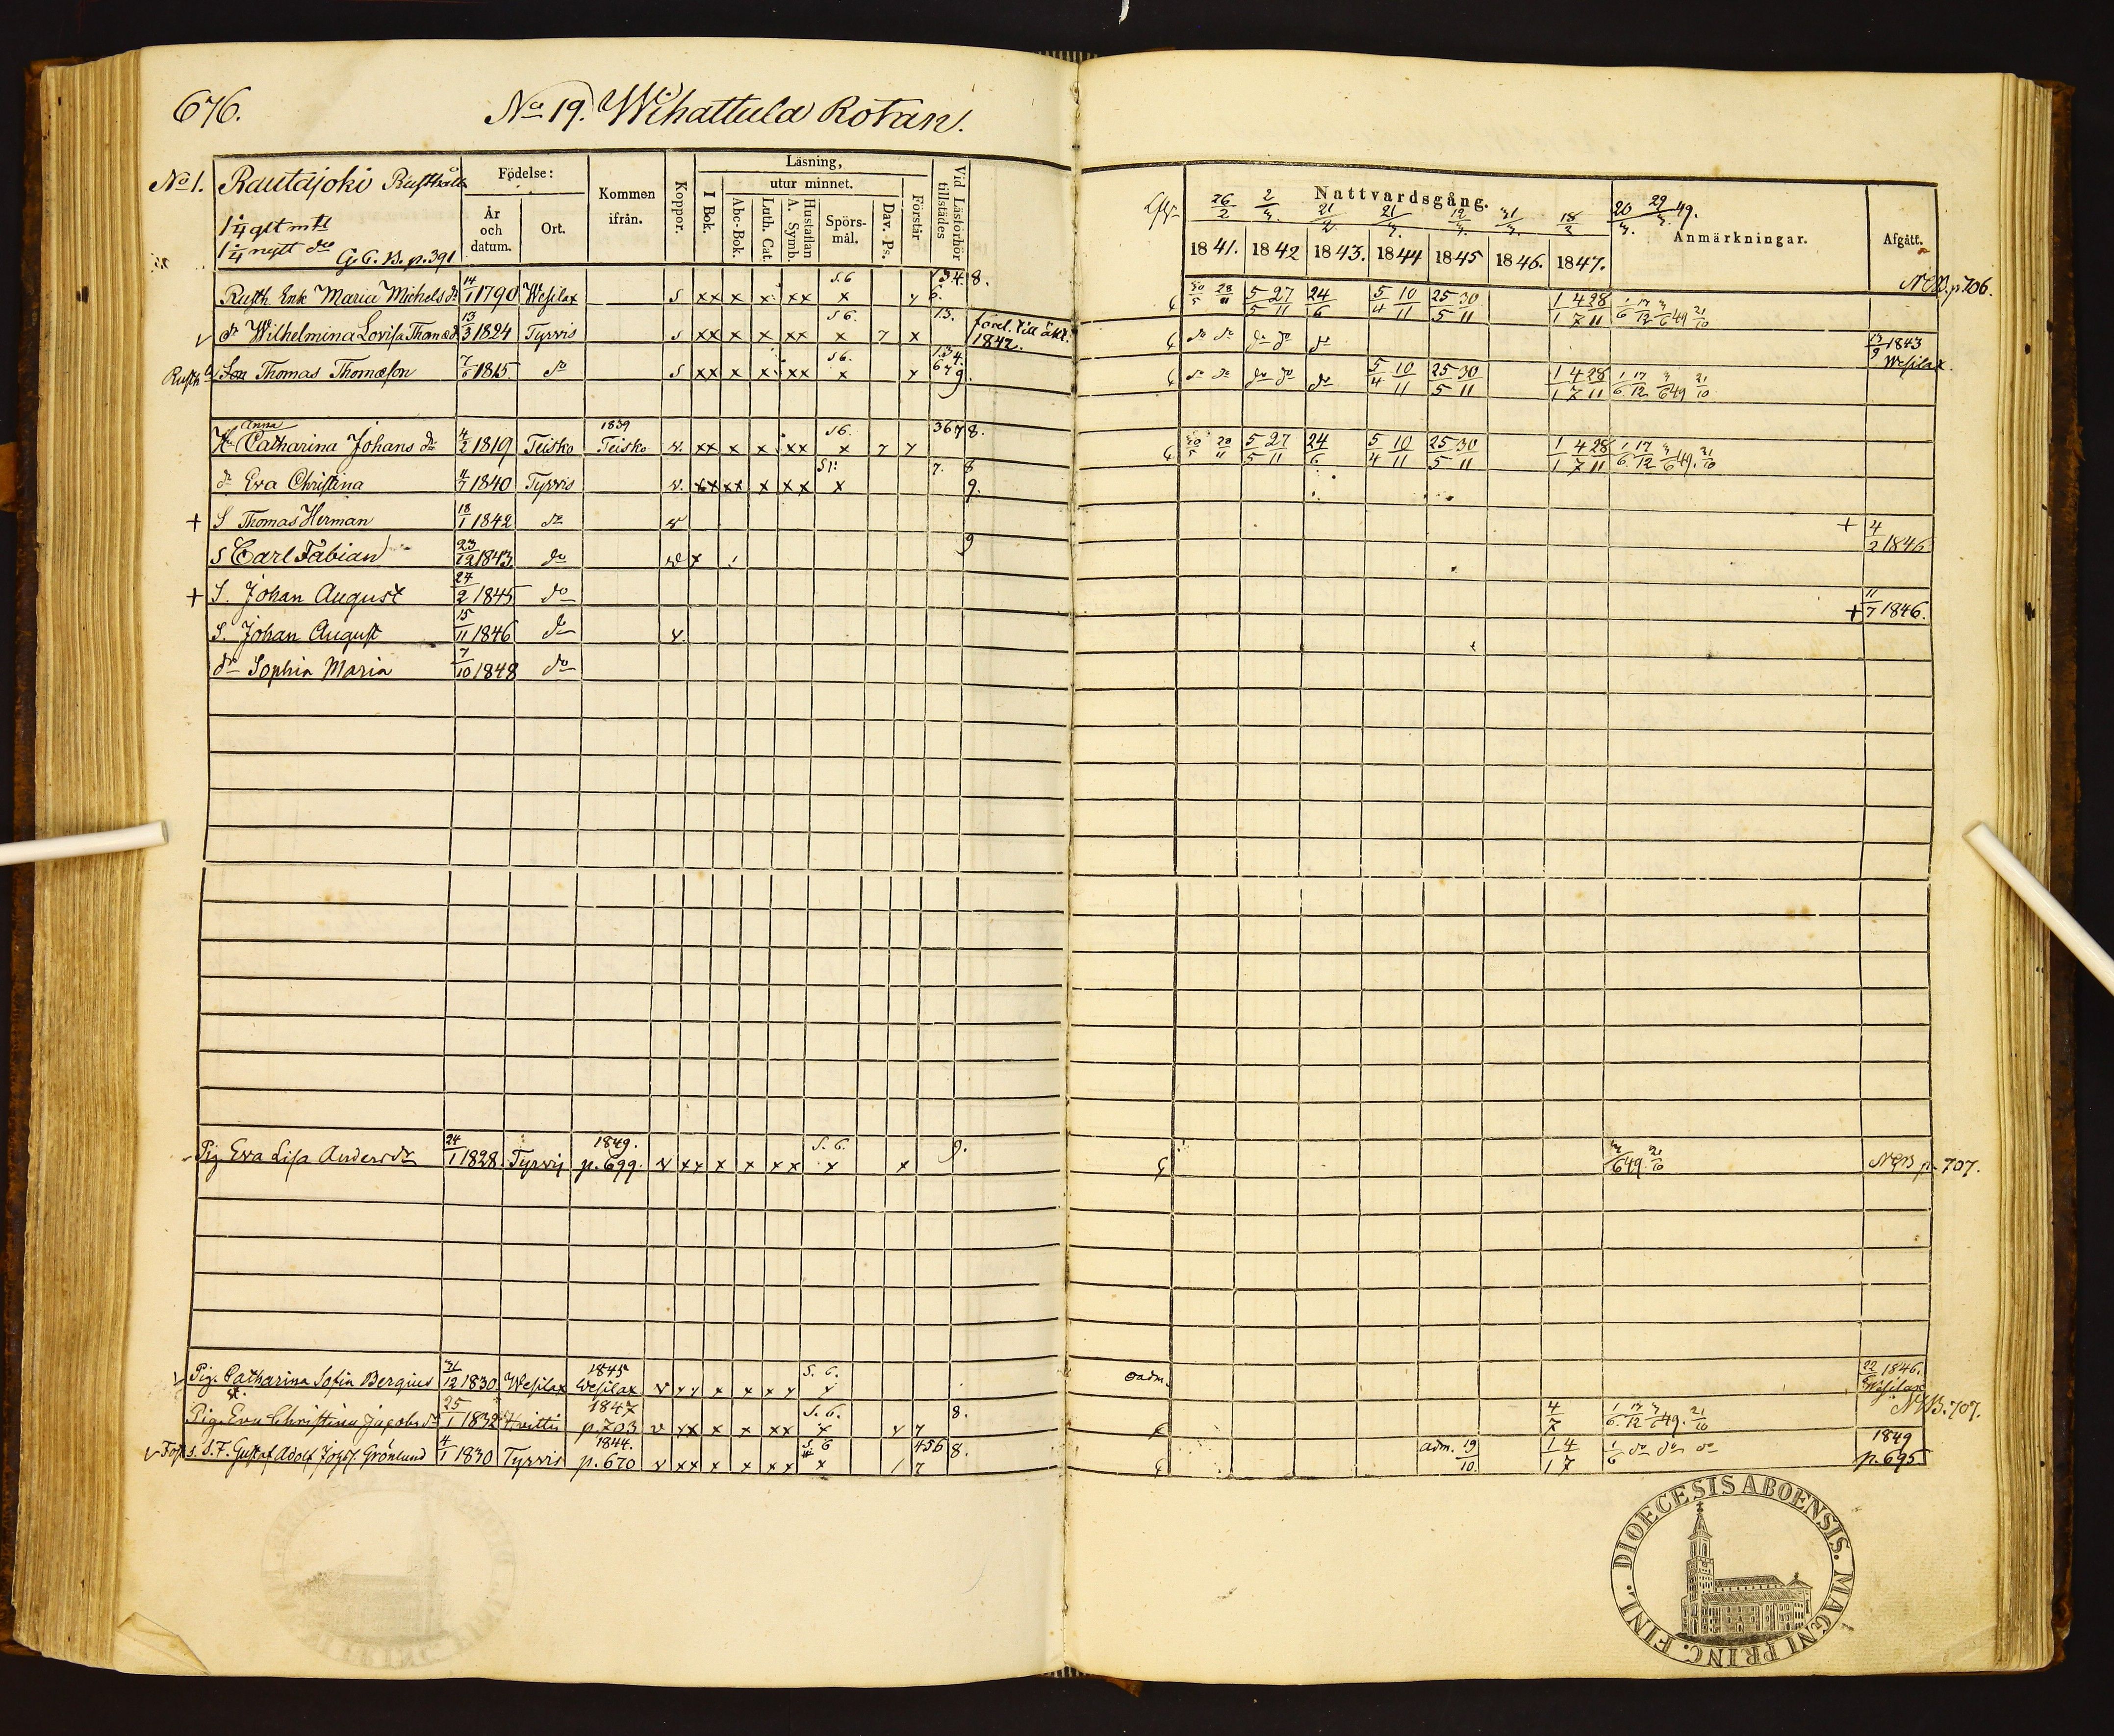 676.
No 19. Wihattula Rotan.
No 1. Rautajoki Rusthåll
1/4 glt mtl
1/4 nytt do
G. C. B. p. 391
Födelse:
År och datum.
Ort.
Kommen ifrån.
Koppor.
Läsning,
utur minnet.
I Bok.
Abc-Bok.
Luth. Cat.
Hustaflan A. Symb.
Spörs-mål.
Dav. Ps.
Förstår
Vid Läsförhör tillstädes
Nattvardsgång.
26/2 2/3. 21/2 21/3. 12/3. 31/3. 18/2 20/3. 29/3. 49.
1841. 1842 1843. 1844 1845 1846. 1847.
Anmärkningar.
Afgått.
Rusth. Enk. Maria Michels dr 14/1 1790 Wesilax s xx x x xx s.6 x 134 6. 8. 30/5 28/11 5/5 27/11 24/6 5/4 10/11 25/5 30/11 1/1 4/7 28/11 1/6 17/12 3/6 49 21/10 N.C.B. p. 706.
dr Wilhelmina Lovisa Thomædr 13/3 1824 Tyrvis s xx x x xx s6. x 7 x 13. förel. till äkt. 1842. do do do do do 17/9 1843 Wesilax.
Rusth Son Thomas Thomæson 7/6 1815. do s xx x x xx s6. x 134. 679. do do do do do 5/4 10/11 25/5 30/11 1/1 4/7 28/11 1/6 17/12 3/6 49 21/10
H. Anna Catharina Johans dr 4/2 1819 Teisko 1839 Teisko v. xx x x xx s6. x 7 7 3678. 30/5 28/11 5/5 27/11 24/6 5/4 10/11 25/5 30/11 1/1 4/7 28/11 1/6 17/12 3/6 49. 21/10
dr Eva Christina 4/7 1840 Tyrvis v. xx xx x xx x 7. 8 9.
+ S Thomas Herman 18/1 1842 do v + 4/2 1846
S Carl Fabian 23/12 1843 do v x 9
+ S. Johan August 24/2 1845 do + 11/7 1846.
S. Johan August 15/11 1846 do v.
dr Sophia Maria 7/10 1848 do
Pig Eva Lisa Andersdr 24/1 1828 Tyrvis 1849. p. 699. v xx x x xx s.6. x x 9. 3/6 49. 21/10 NCB p. 707.
v Pig. Catharina Sofia Bergius 31/12 1830 Wesilax 1845 Wesilax v xx x x x s.6. x oadm. 22 1846. Wesilax
Pig. Eva Christina Jacobsdr 25/1 1832 Hvittis 1847 p. 703 v xx x x xx s.6. x 8. 4/7 1/6 17/12 3/6 49. 21/10 NCB. 707.
v Fost. s. S. F. Gustaf Adolf Grönlund 4/1 1830 Tyrvis 1844. p. 670 v xx x x xx s.6 x 1 7 456 8. adm. 19/10. 1/1 4/7 1/6 do do do 1849 p. 695
FINL. DIOECESIS ABOENSIS. MAGNI PRINC.